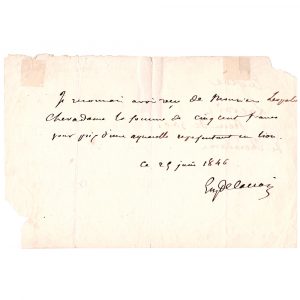 Je reconnais avoir reçu de Monsieur Léopold
Chevadame la somme de cinq cent francs
pour prix d'une aquarelle représentant un lion.
Ce 25 juin 1846
Eug Delacroix